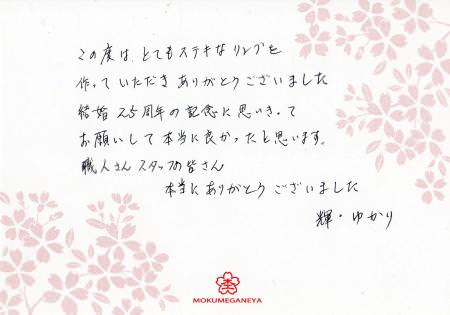 この度は、とてもステキなリングを
作って いただき ありがとうございました
結婚25周年の記念に思いきって
お願いして本当に良かったと思います。
職人さん スタッフの皆さん
本当に ありがとう ございました
輝・ゆかり
MOKUMEGANEYA